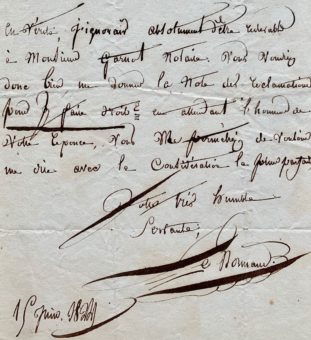 En vérité, j'ignorais absolument d'être redevable
à Monsieur Garnot Notaire. Vous voudrez
donc bien me donner la Note des réclamations
pour y faire droit en attendant l'honneur de
Votre réponse, Vous Me permettrez de Vouloir
me dire avec la Considération la plus parfaite
Votre très humble
Servante,
Normand
15 Juin